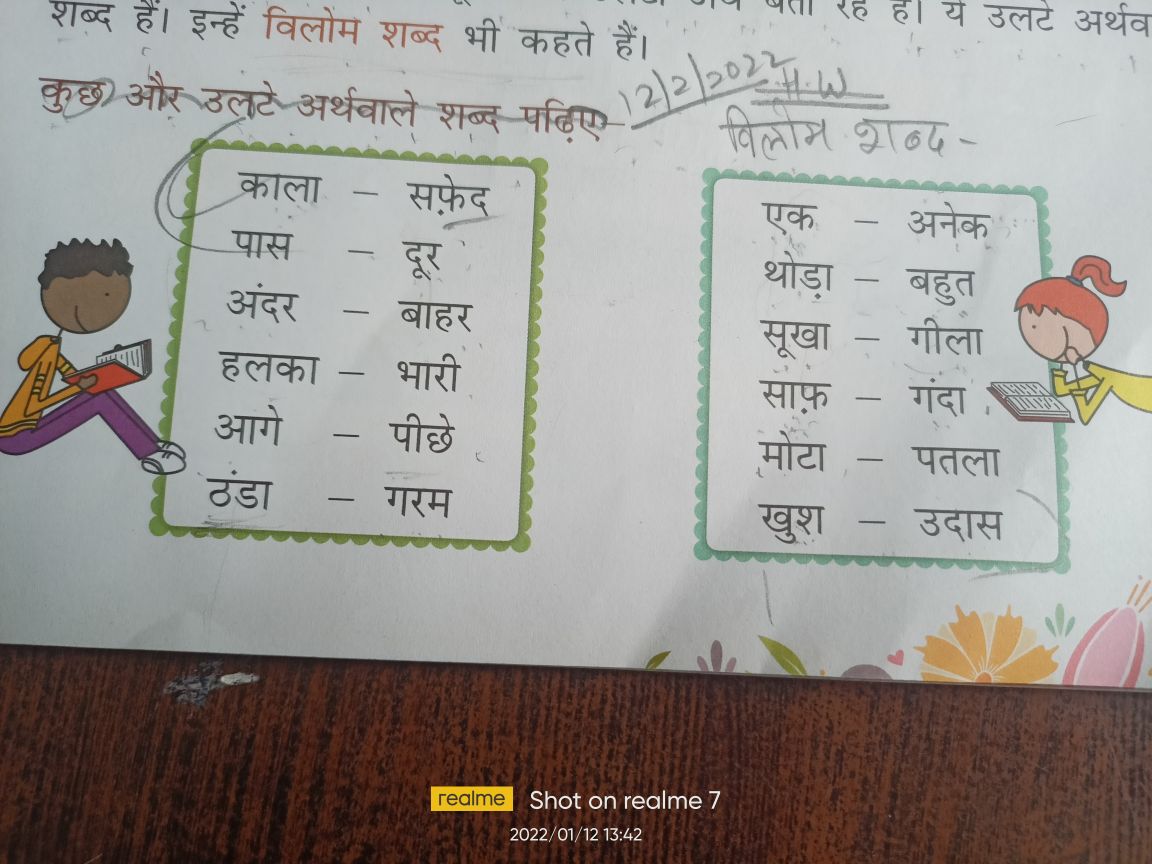 शब्द हैं। इन्हें विलोम शब्द भी कहते हैं।
बता रहे हैं। ये उलटे अर्थव
कुछ और उलटे अर्थवाले शब्द पढ़िए–
12/2/2022 H.W
विलोम शब्द -
काला – सफ़ेद
पास – दूर
अंदर – बाहर
हलका – भारी
आगे – पीछे
ठंडा – गरम
एक – अनेक
थोड़ा – बहुत
सूखा – गीला
साफ़ – गंदा
मोटा – पतला
खुश – उदास
realme Shot on realme 7
2022/01/12 13:42